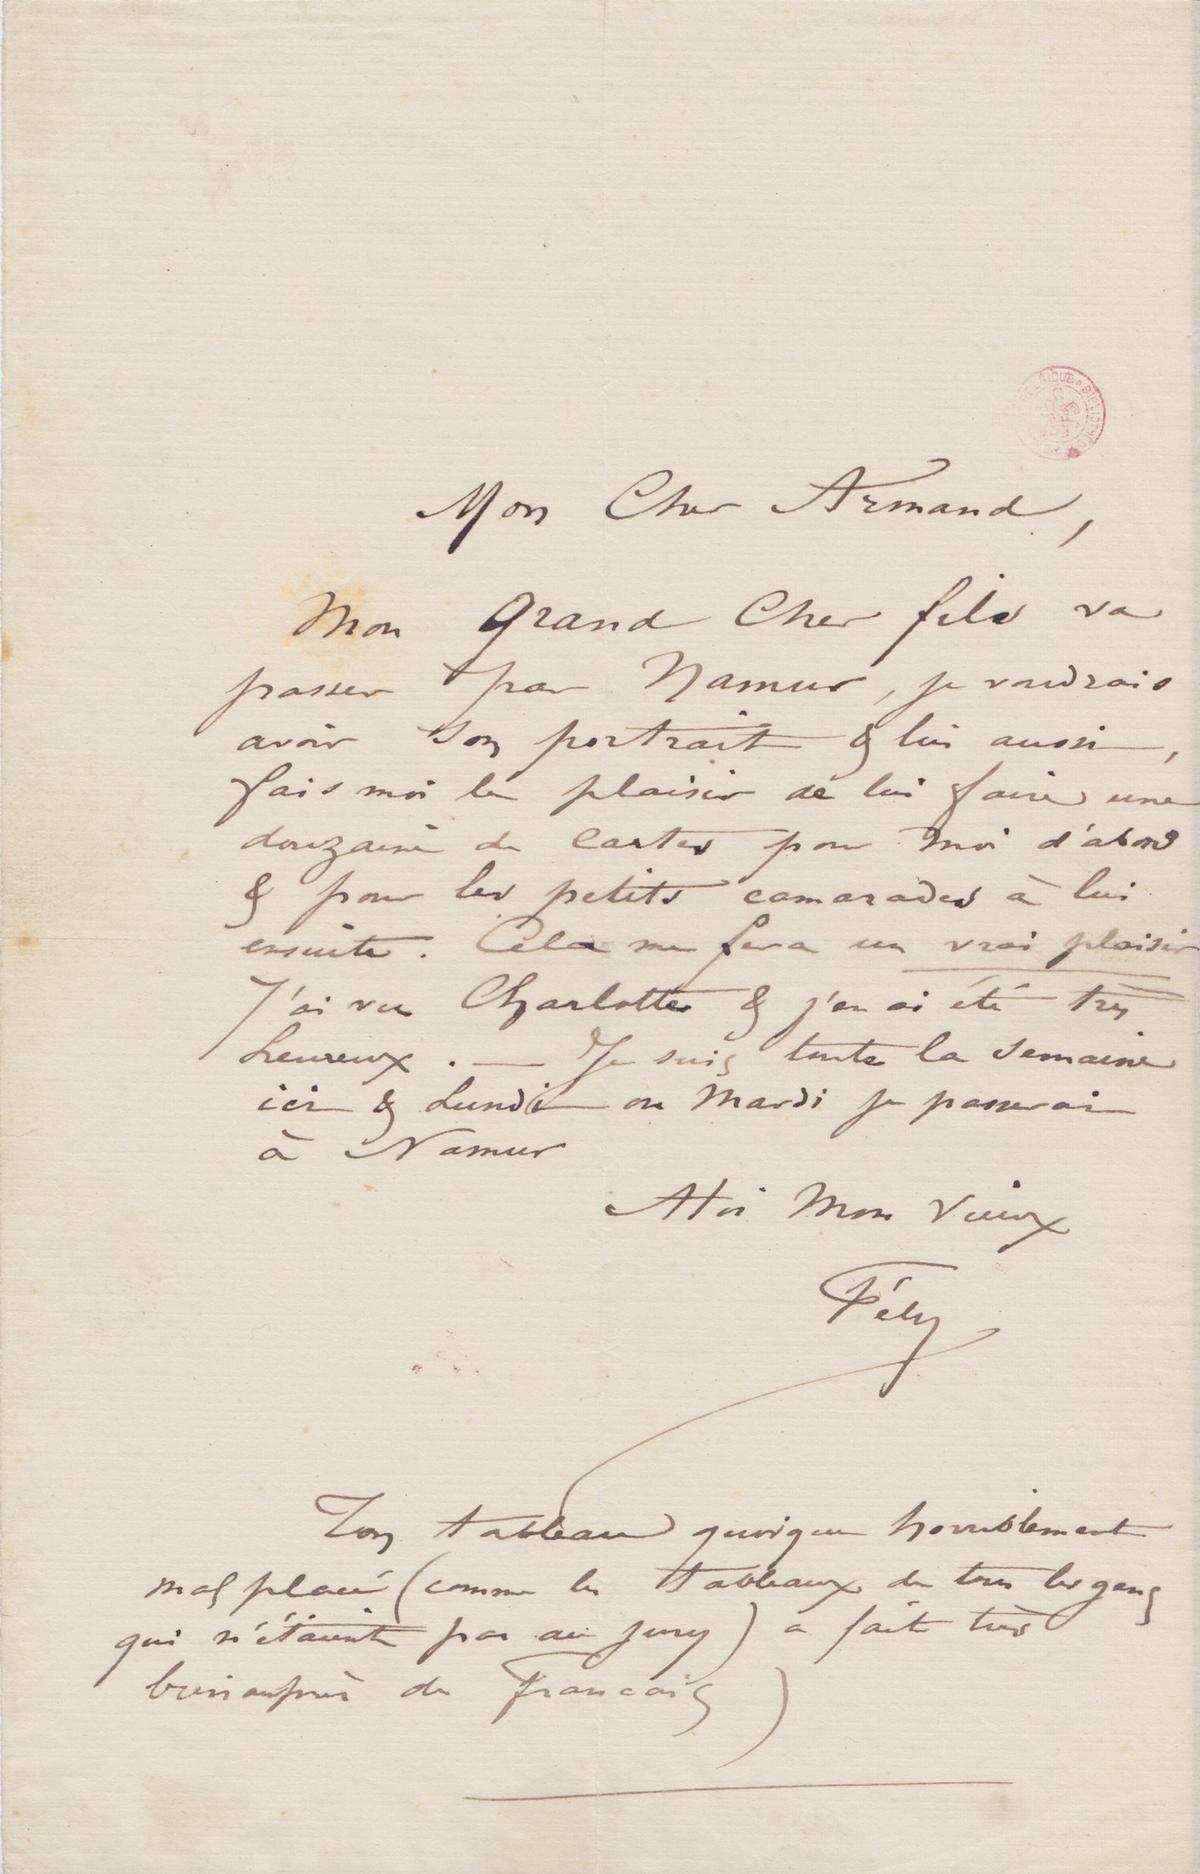 Mon Cher Armand,
Mon Grand Cher fils va
passer par Namur, je voudrais
avoir son portrait & lui aussi,
fais moi le plaisir de lui faire une
douzaine de cartes pour moi d'abord
& pour les petits camarades à lui
ensuite. Cela me fera un vrai plaisir
J'ai vu Charlotte & j'en ai été très
heureux. — Je suis toute la semaine
ici & Lundi ou Mardi je passerai
à Namur
A toi Mon Vieux
Fély
Ton tableau quoique horriblement
mal placé (comme les tableaux de tous les gens
qui n'étaient pas au jury) a fait très
bien auprès de Francais)